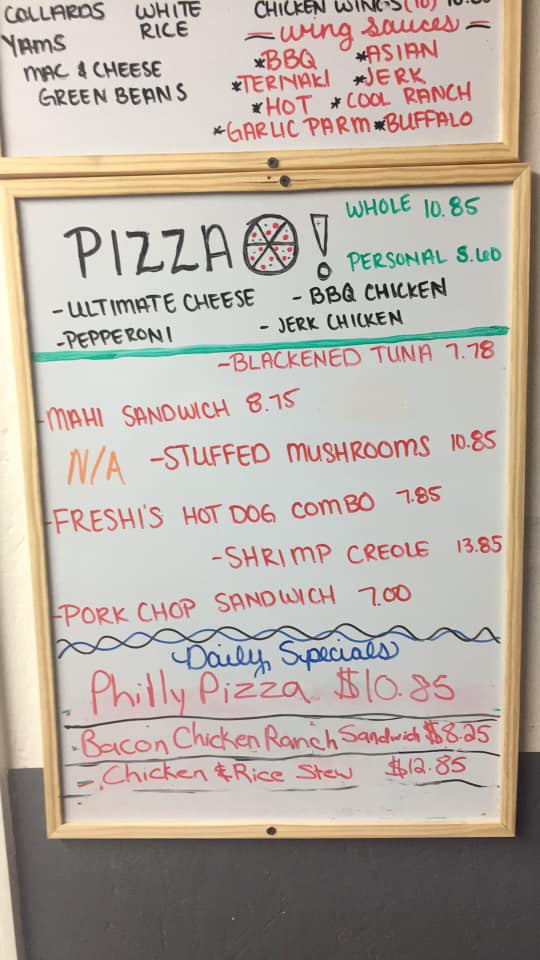 COLLARDS WHITE
YAMS RICE
MAC & CHEESE
GREEN BEANS
CHICKEN WINGS (10)
= wing sauces =
*BBQ *ASIAN
*TERIYAKI *JERK
*HOT *COOL RANCH
*GARLIC PARM *BUFFALO
PIZZA !
WHOLE 10.85
PERSONAL 5.60
-ULTIMATE CHEESE - BBQ CHICKEN
-PEPPERONI - JERK CHICKEN
-BLACKENED TUNA 7.78
-MAHI SANDWICH 8.75
N/A -STUFFED MUSHROOMS 10.85
-FRESHI'S HOT DOG COMBO 7.85
-SHRIMP CREOLE 13.85
-PORK CHOP SANDWICH 7.00
Daily Specials
Philly Pizza $10.85
Bacon Chicken Ranch Sandwich $8.25
- Chicken & Rice Stew $12.85